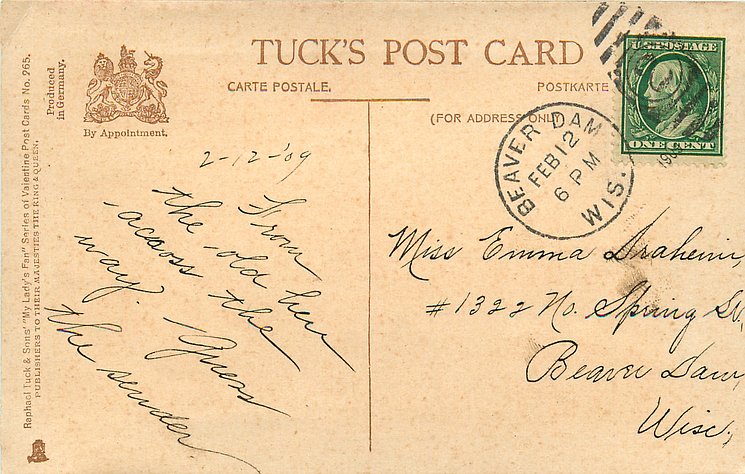 TUCK'S POST CARD
CARTE POSTALE.
POSTKARTE
(FOR ADDRESS ONLY)
Produced
in Germany.
By Appointment.
Raphael Tuck & Sons' "My Lady's Fan" Series of Valentine Post Cards No. 265.
PUBLISHERS TO THEIR MAJESTIES THE KING & QUEEN.
U.S. POSTAGE
ONE CENT
BEAVER DAM
FEB 12
6 PM
WIS.
2-12-'09
From
the old hen
across the
way. Guess
the sender
Miss Emma Draheim,
#1322 No. Spring St.,
Beaver Dam,
Wisc,